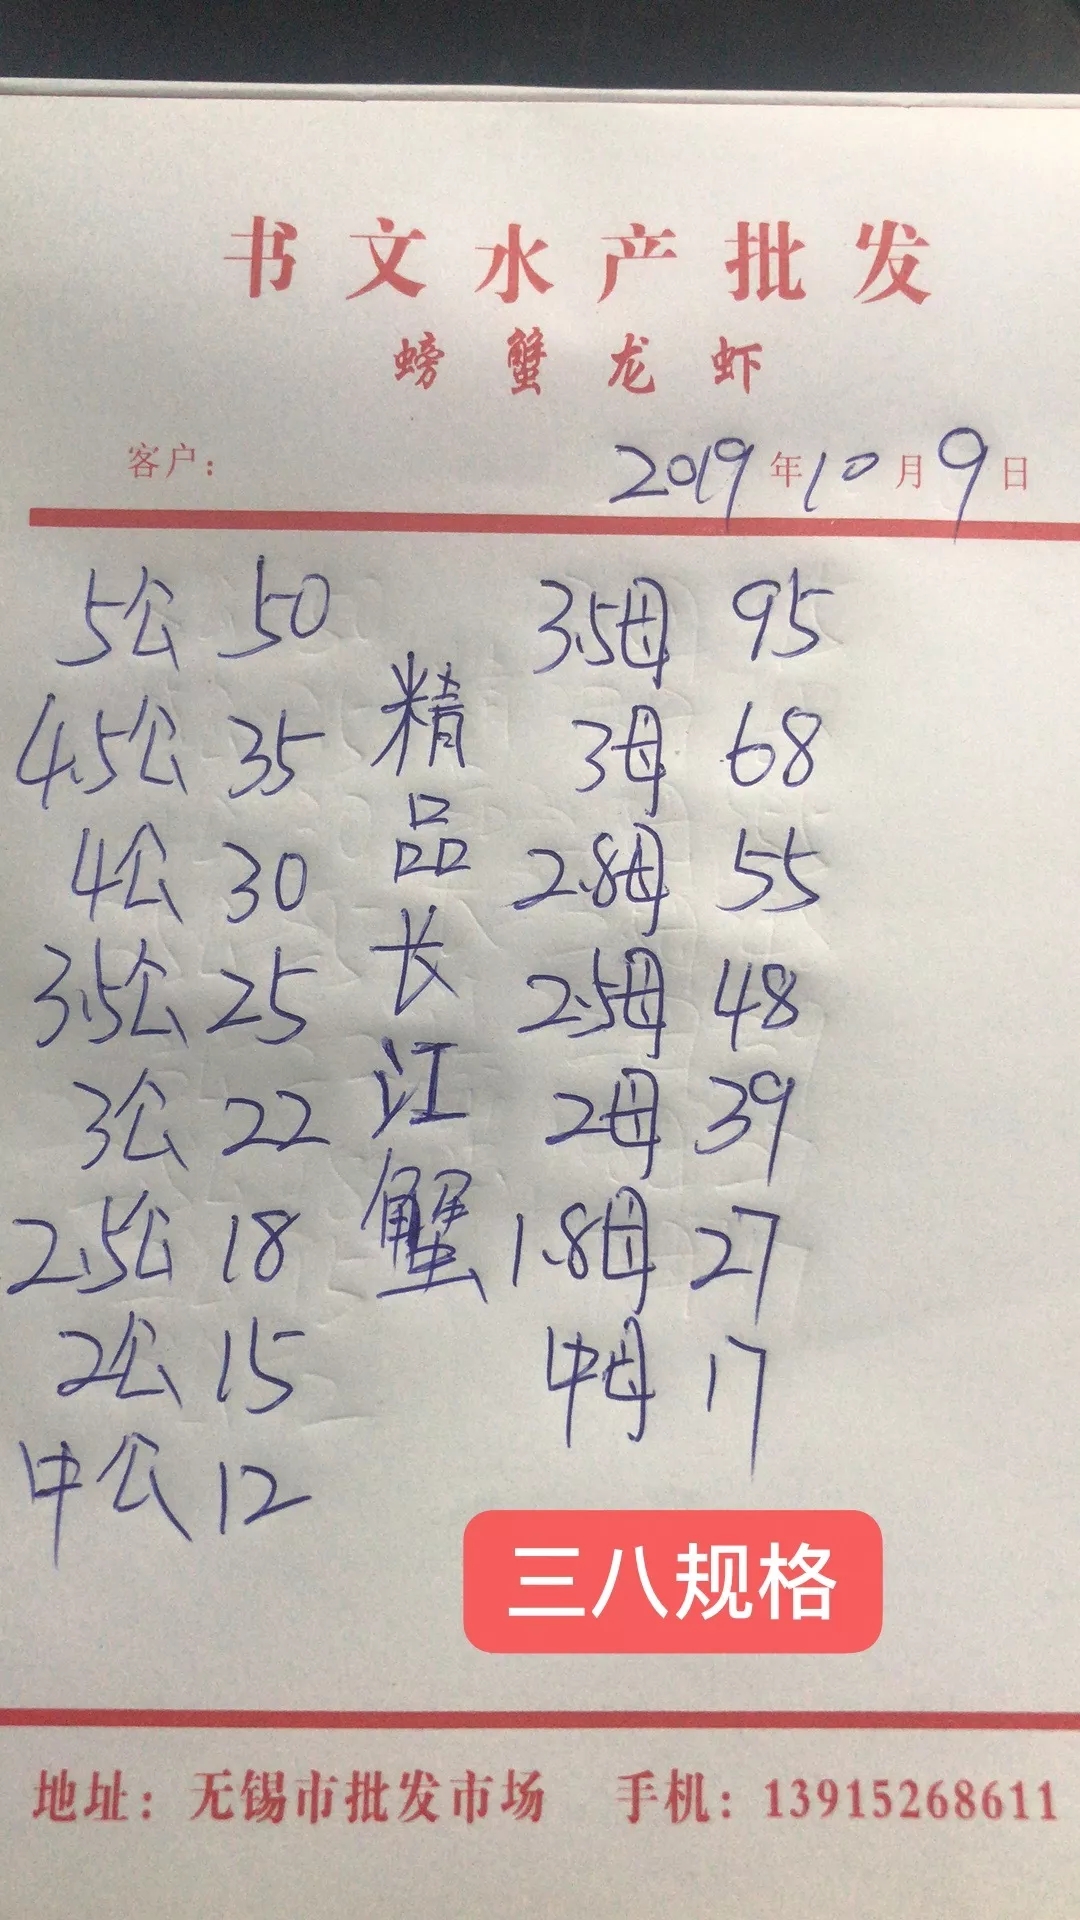 书文水产批发
螃蟹龙虾
客户：
2019年10月9日
5公 50
4.5公 35
4公 30
3.5公 25
3公 22
2.5公 18
2公 15
中公 12
精品长江蟹
3.5母 95
3母 68
2.8母 55
2.5母 48
2母 39
1.8母 27
中母 17
三八规格
地址：无锡市批发市场 手机：13915268611